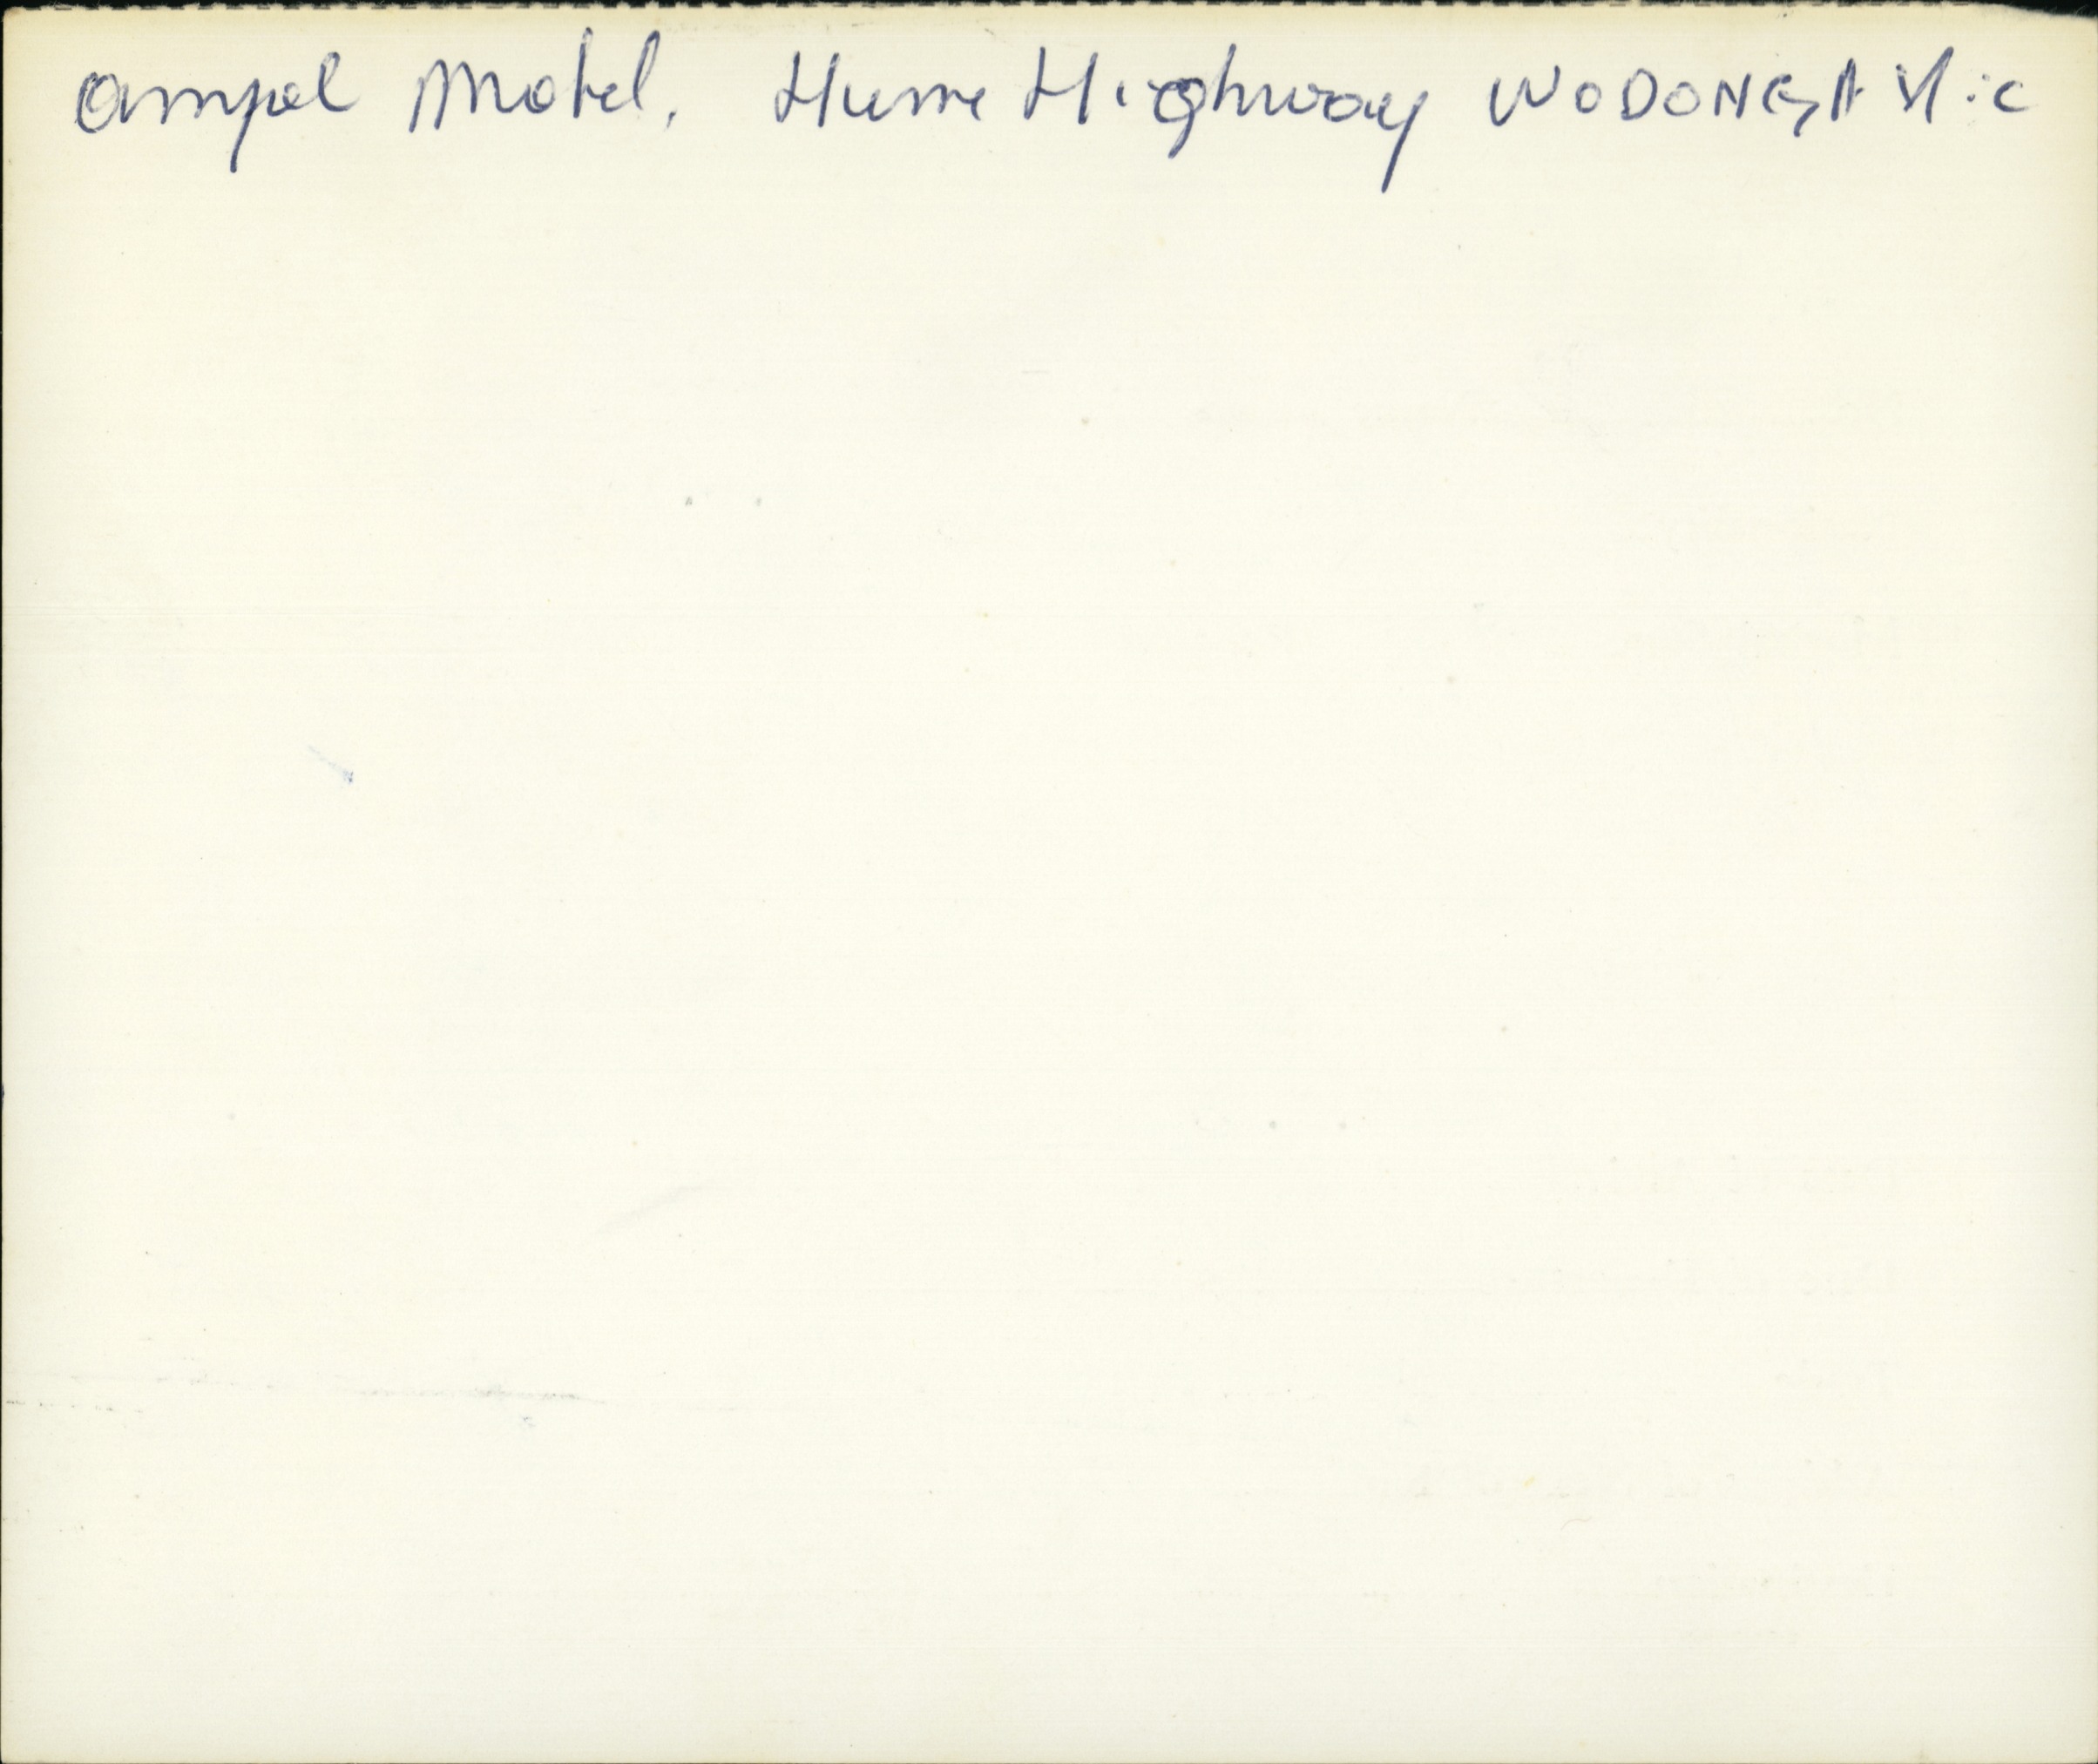 Ampol Motel, Hume Highway WODONGA Vic